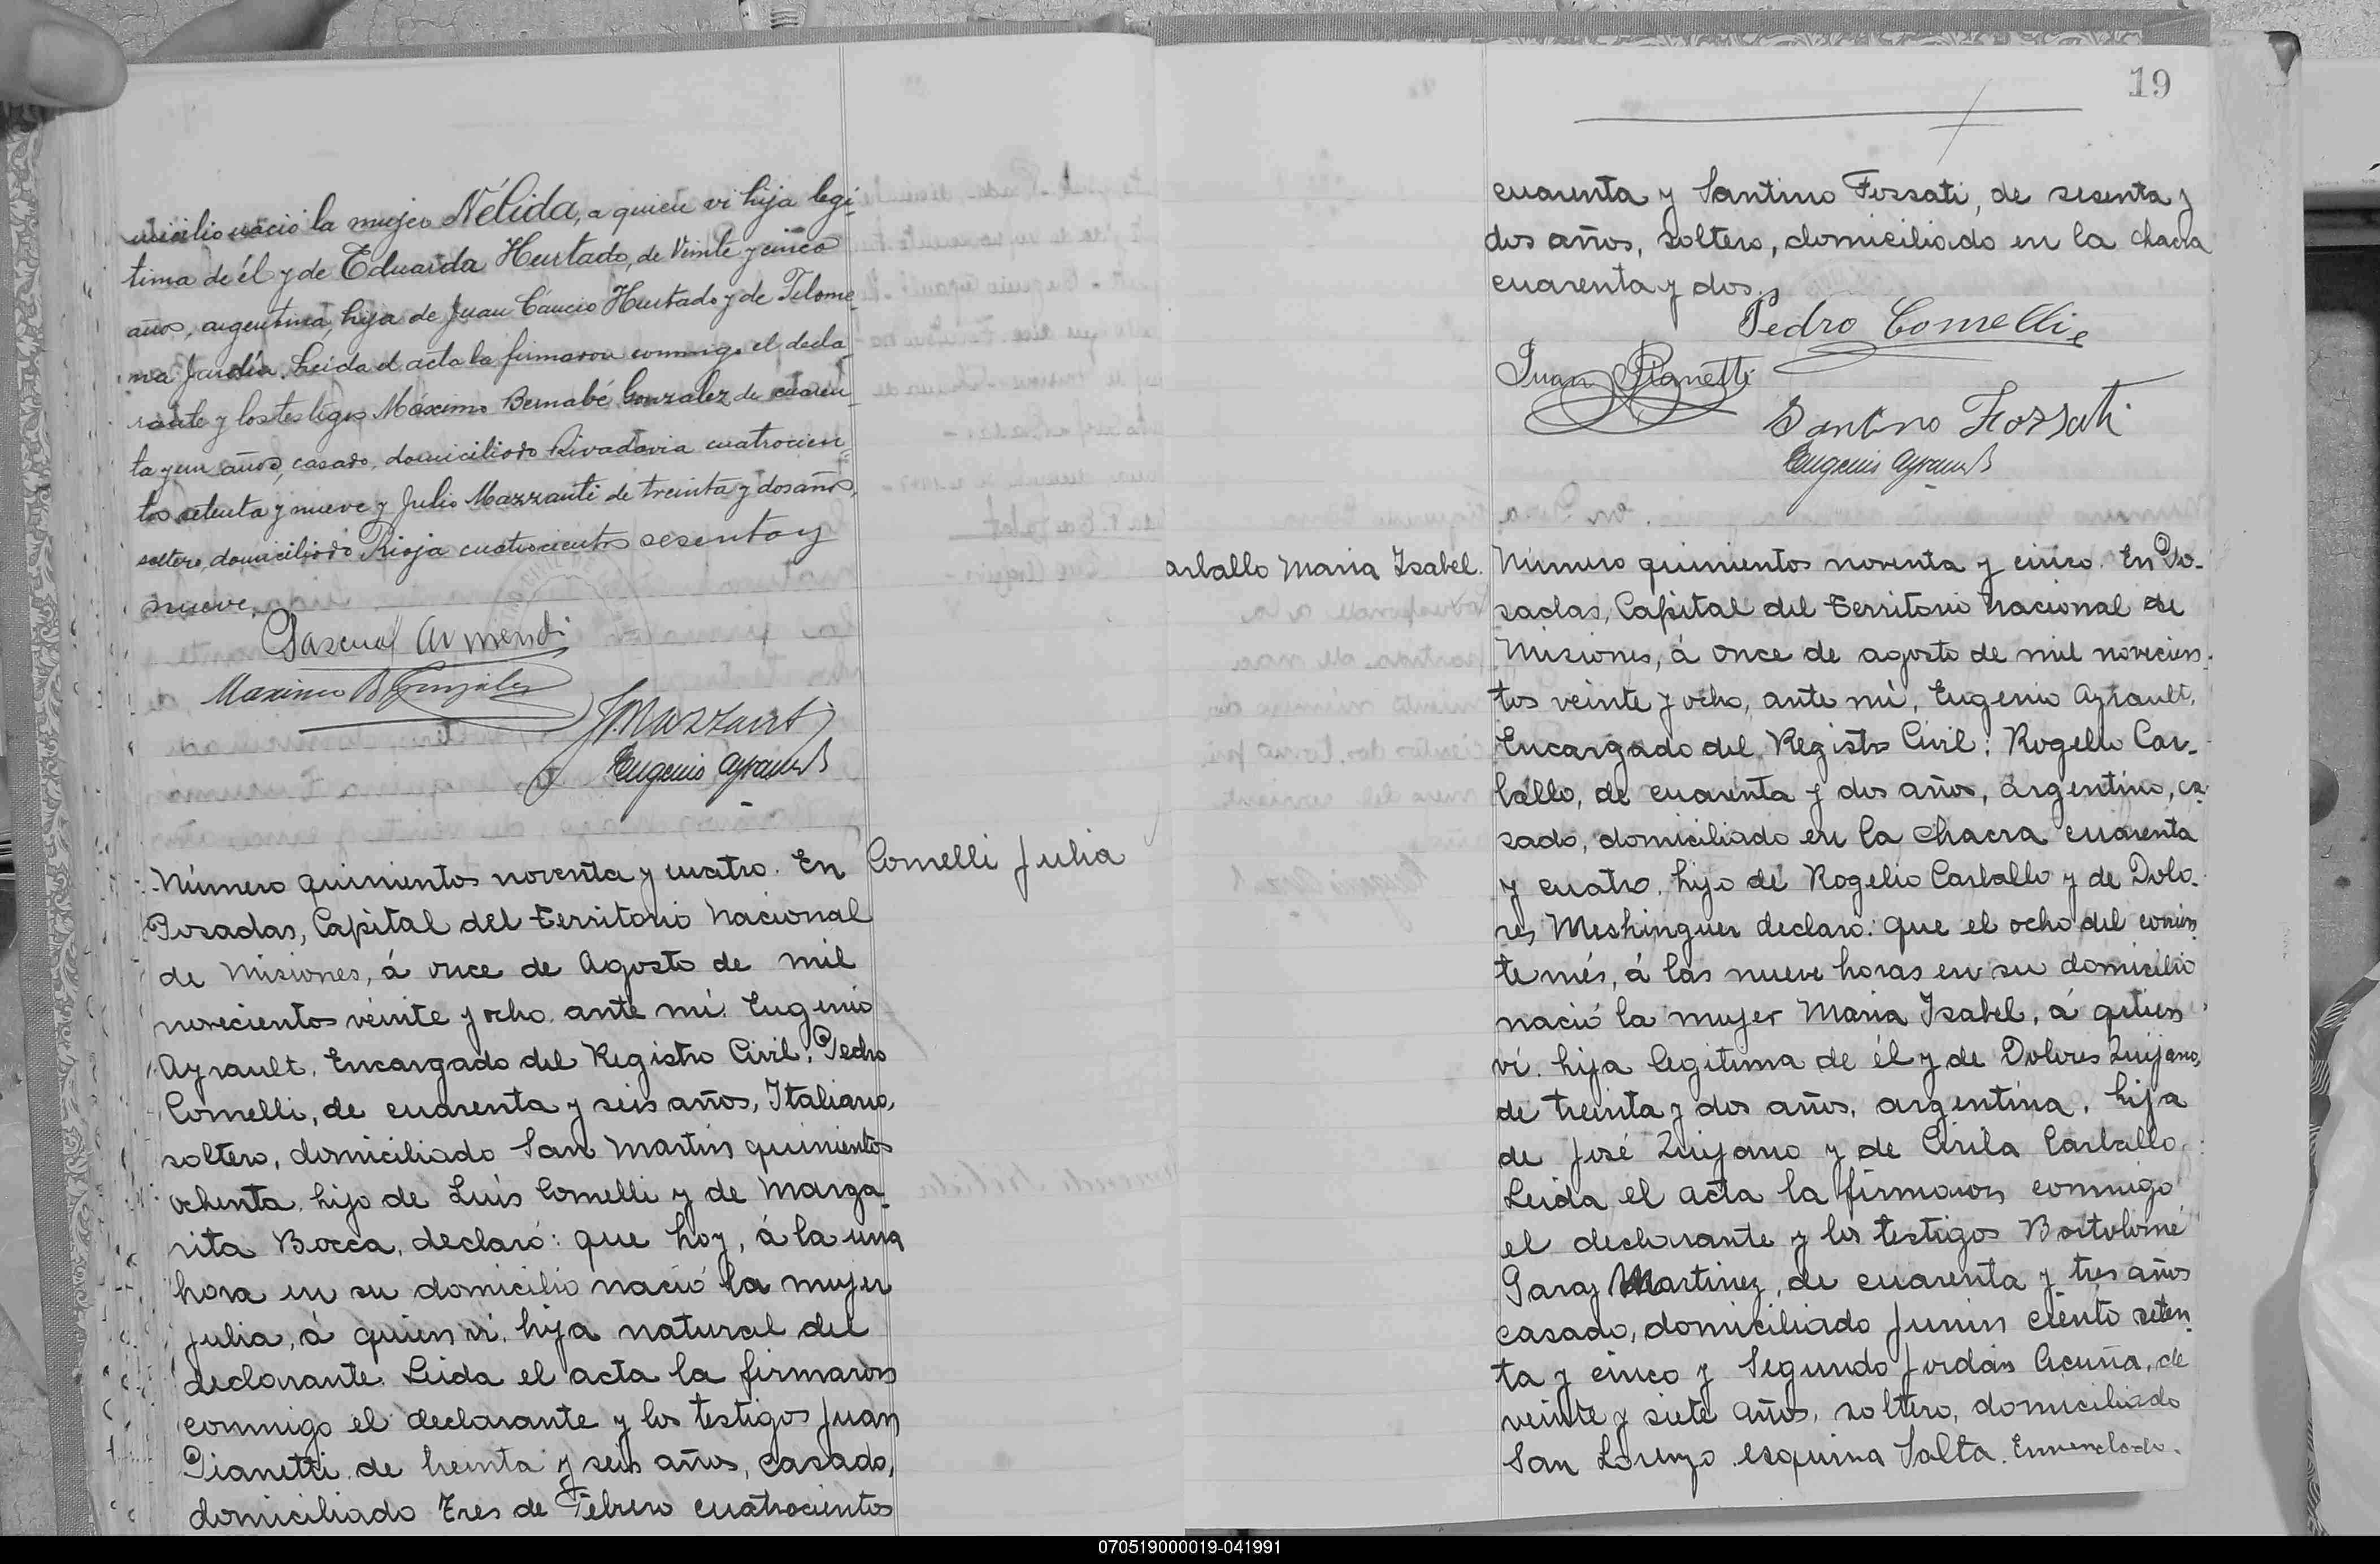 micilio nació la mujer Nélida, a quien vi hija legí-
tima de él y de Eduarda Hurtado, de Veinte y cinco
años, argentina, hija de Juan Cáncio Hurtado y de Filome-
na Jardín. Leida el acta la firmaron conmigo el decla-
rante y los testigos Máximo Bernabé Gonzalez de cuaren-
ta y un años, casado, domiciliado Rivadavia cuatrocien-
tos setenta y nueve y Julio Mazzanti de treinta y dos años,
soltero, domiciliado Rioja cuatrocientos sesenta y
nueve.
Pascual Armendi
Maximo B Gonzalez
J. Mazzanti
Eugenio Ayrault
Comelli Julia
Número quinientos noventa y cuatro. En
Posadas, Capital del Territorio Nacional
de Misiones, á once de Agosto de mil
novecientos veinte y ocho, ante mí. Eugenio
Ayrault, Encargado del Registro Civil: Pedro
Comelli, de cuarenta y seis años, Italiano,
soltero, domiciliado San Martin quinientos
ochenta, hijo de Luis Comelli y de Marga-
rita Bocca, declaró: que hoy, á la una
hora en su domicilio nació la mujer
Julia, á quien ví, hija natural del
declarante. Leida el acta la firmaron
conmigo el declarante y los testigos Juan
Pianetti de treinta y seis años, casado,
domiciliado Tres de Febrero cuatrocientos
19
cuarenta y Santino Fossati, de sesenta y
dos años, soltero, domiciliado en la chacra
cuarenta y dos.
Pedro Comelli
Juan Pianetti
Santino Fossati
Eugenio Ayrault
arballo Maria Isabel.
Número quinientos noventa y cinco. En Po-
sadas, Capital del Territorio Nacional de
Misiones, á once de agosto de mil novecien-
tos veinte y ocho, ante mí, Eugenio Ayrault,
Encargado del Registro Civil: Rogelio Car-
ballo, de cuarenta y dos años, argentino, ca-
sado, domiciliado en la chacra cuarenta
y cuatro, hijo de Rogelio Carballo y de Dolo-
res Meshinguer declaró: que el ocho del corrien-
te més, á las nueve horas en su domicilio
nació la mujer Maria Isabel, á quien
ví. hija legitima de él y de Dolores Quijano,
de treinta y dos años, argentina, hija
de José Quijano y de Cirila Carballo.
Leida el acta la firmaron conmigo
el declarante y los testigos Bartolomé
Garay Martinez, de cuarenta y tres años
casado, domiciliado Junin ciento seten-
ta y cinco y Segundo Jordán Acuña, de
veinte y siete años, soltero, domiciliado
San Lorenzo esquina Salta. Enmendado.
070519000019-041991